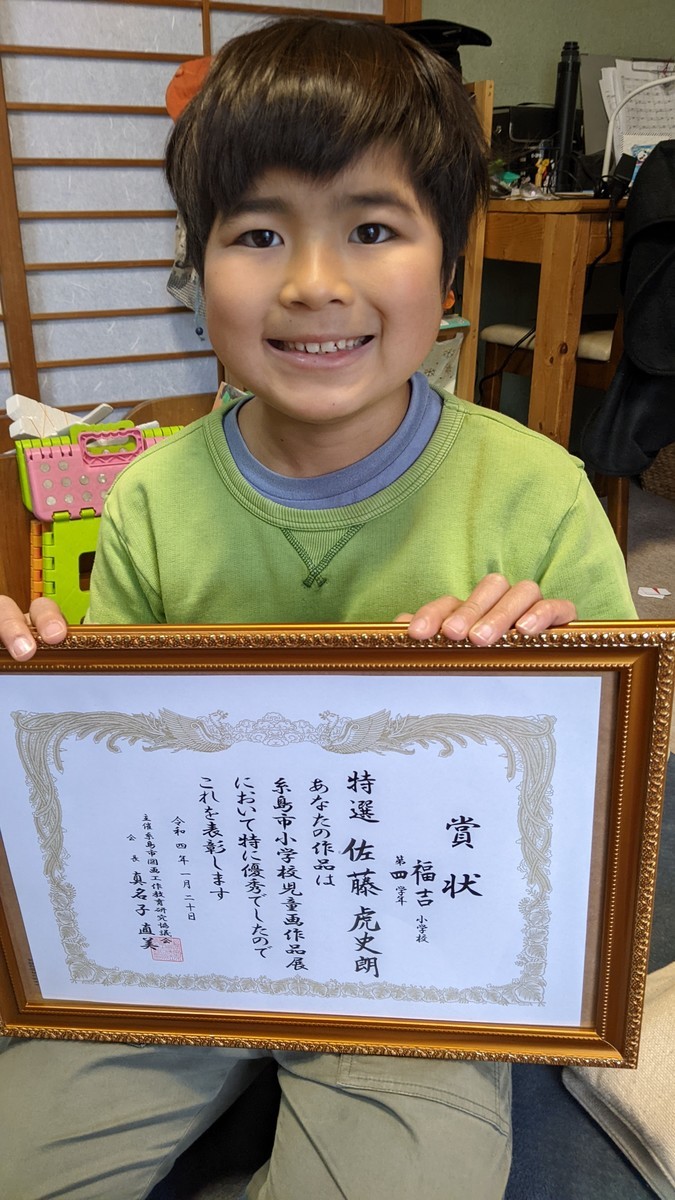 賞状
福吉小学校
第四学年
特選 佐藤虎史朗
あなたの作品は
糸島市小学校児童画作品展
において特に優秀でしたので
これを表彰します
令和四年一月二十日
主催糸島市図画工作教育研究協議会
会長 真名子直美